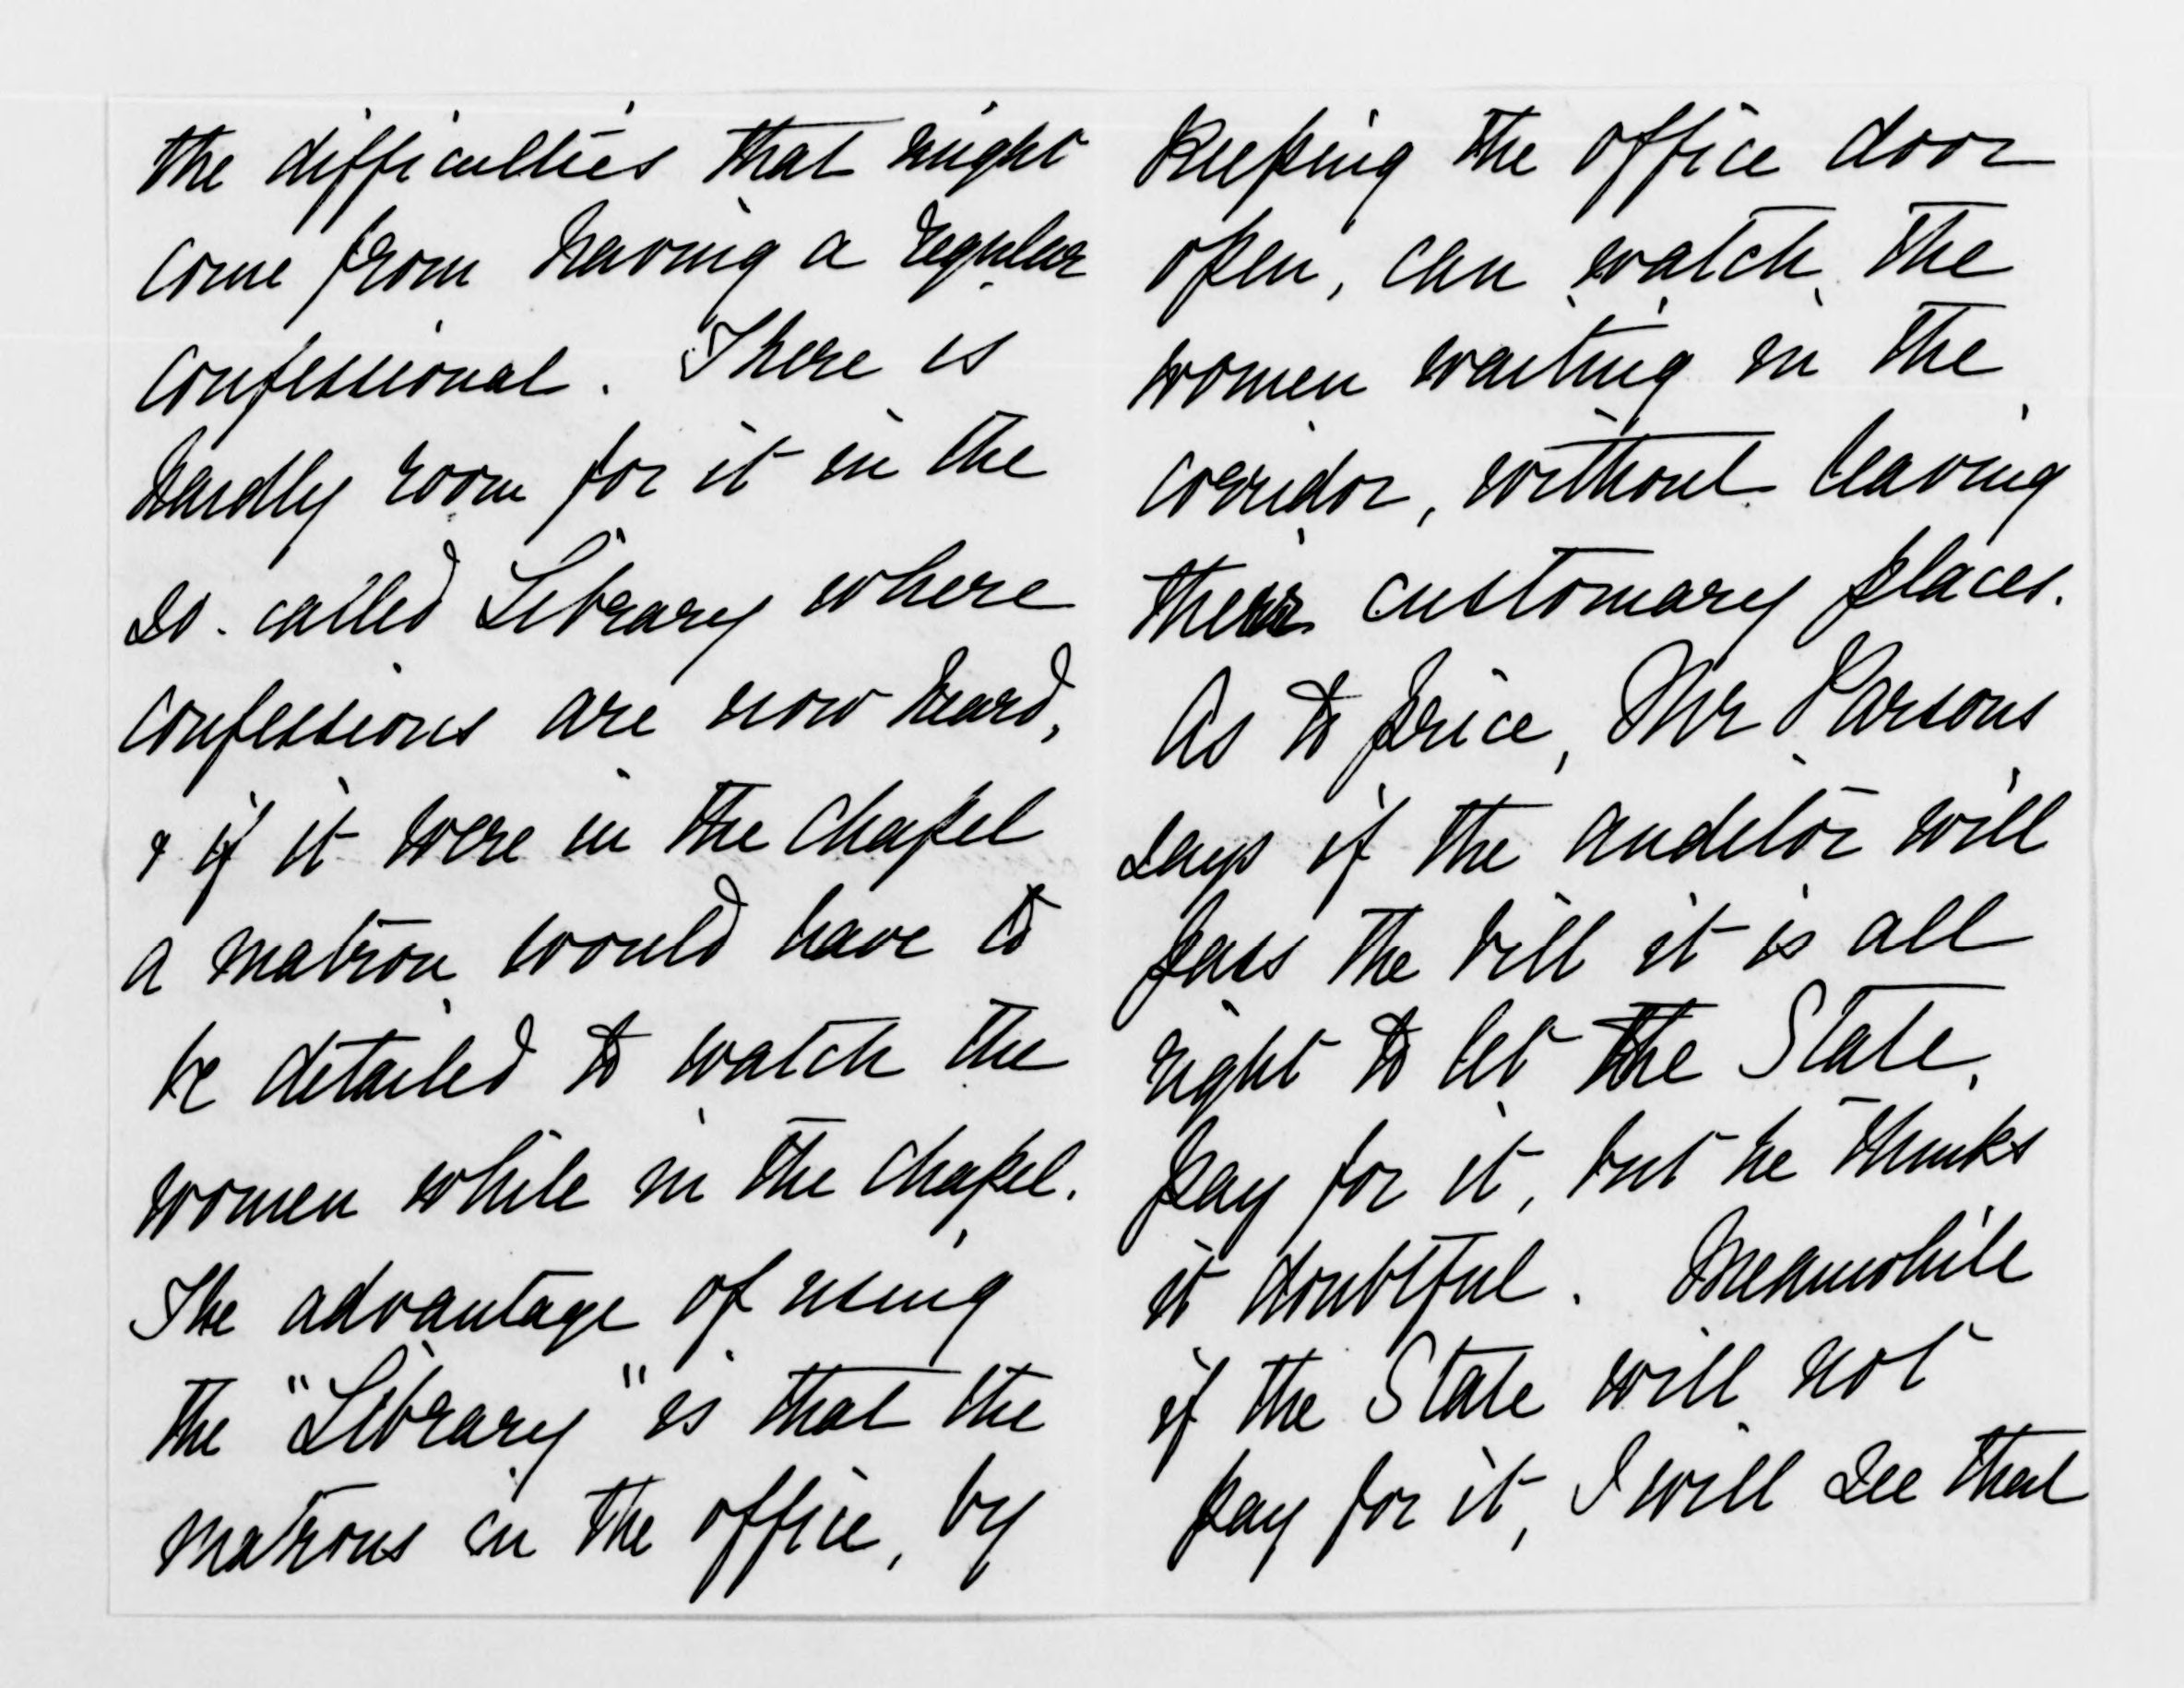 the difficulties that might
come from having a regular
confessional. There is
hardly room for it in the
so-called Library where
confessions are now heard,
& if it were in the chapel
a matron would have to
be detailed to watch the
women while in the chapel.
The advantage of using
the "Library" is that the
matrons in the office, by
keeping the office door
open, can watch the
women waiting in the
corridor, without leaving
their customary places.
As to price, Mr Parsons
says if the auditor will
pass the bill it is all
right to let the State
pay for it, but he thinks
it doubtful. Meanwhile
if the State will not
pay for it, I will see that